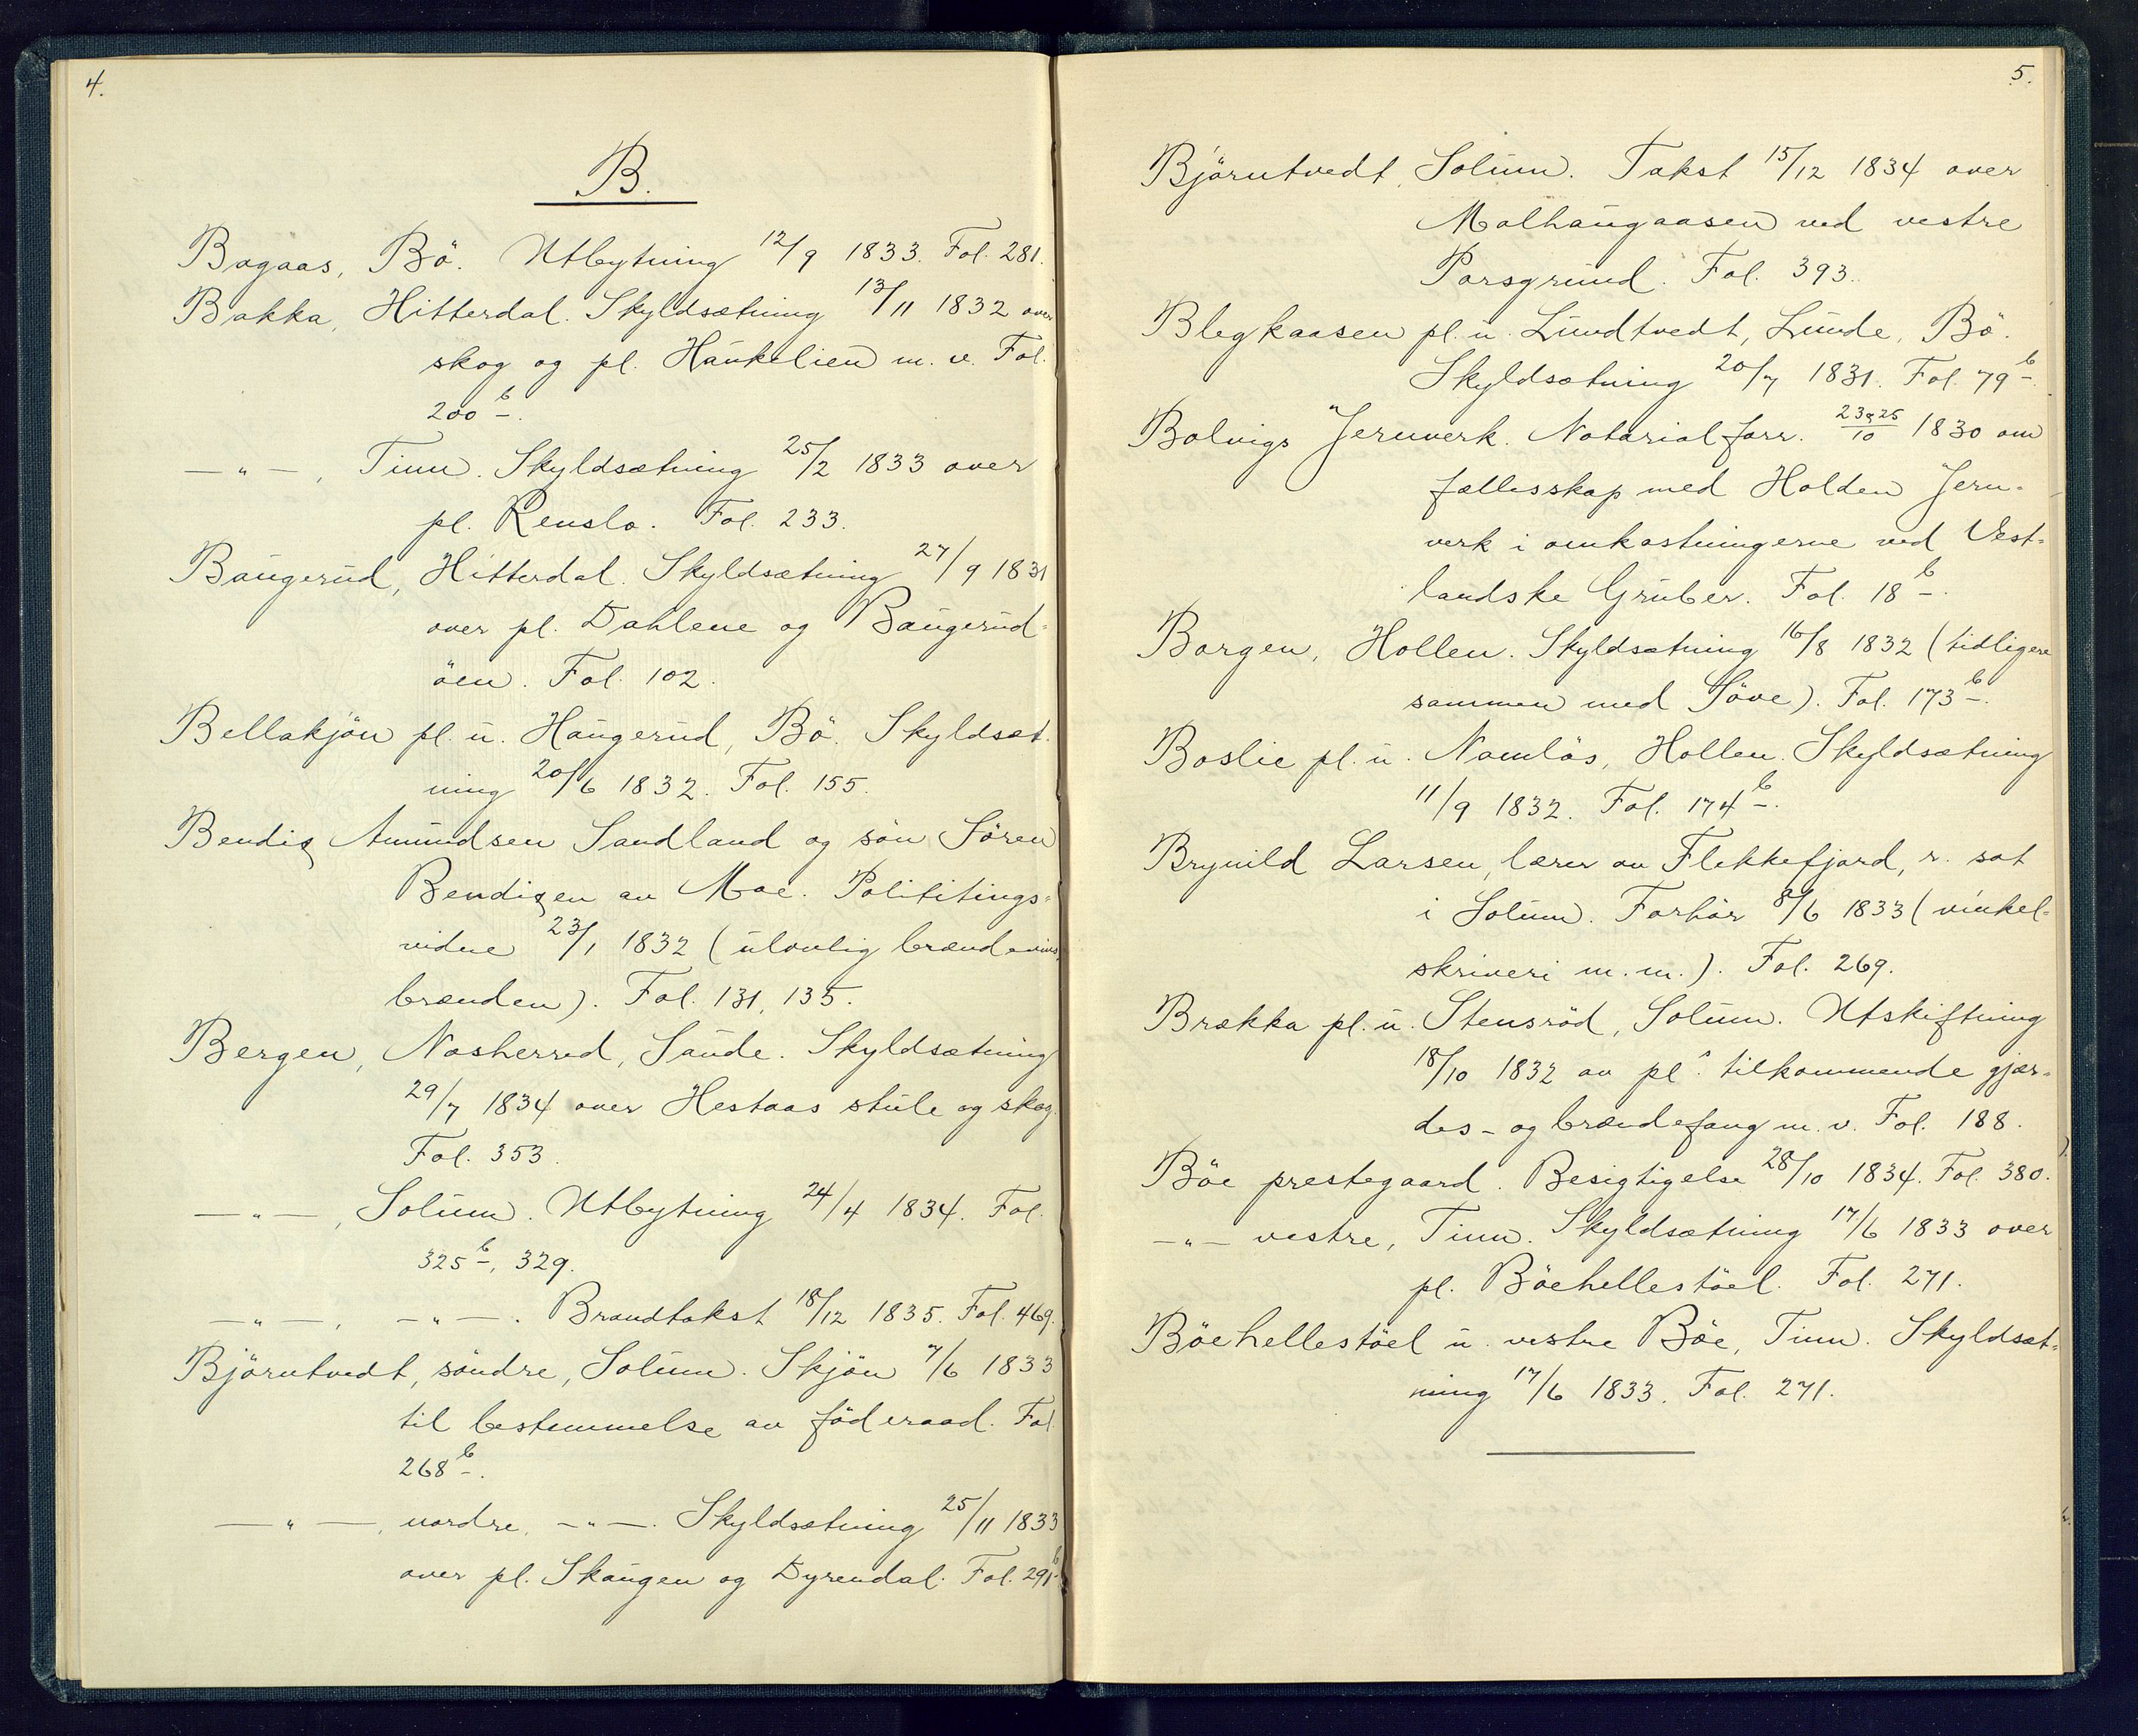 4.
B.
Bagaas, Bö. Utbytning 12/9 1833. Fol. 281.
Bakka, Hitterdal. Skyldsætning 13/11 1832 over
skog og pl. Haukelien m. v. Fol.
200 b.
— " —, Tinn. Skyldsætning 25/2 1833 over
pl. Rensla. Fol. 233.
Baugerud, Hitterdal. Skyldsætning 27/9 1831
over pl. Dahlene og Baugerud-
öen. Fol. 102.
Bellakjön pl. u. Haugerud, Bö. Skyldsæt-
ning 20/6 1832. Fol. 155.
Bendix Amundsen Sandland og sön Sören
Bendixen av Moe. Polititings-
vidne 23/1 1832 (ulovlig brændevins-
brænden). Fol. 131, 135.
Bergen, Nasherred, Saude. Skyldsætning
29/7 1834 over Hestaas stule og skog.
Fol. 353.
— " —, Solum. Utbytning 24/4 1834. Fol.
325 b, 329.
— " —, — " —. Brandtakst 18/12 1835. Fol. 469.
Björntvedt, söndre, Solum. Skjön 7/6 1833
til bestemmelse av föderaad. Fol.
268 b.
— " —, nordre, — " —. Skyldsætning 25/11 1833
over pl. Skaugen og Dyrendal. Fol. 291 b
5.
Björntvedt, Solum. Takst 15/12 1834 over
Malhaugaasen ved vestre
Porsgrund. Fol. 393.
Blegkaasen pl. u. Lundtvedt, Lunde, Bö.
Skyldsætning 20/7 1831. Fol. 79 b.
Bolvigs Jernverk. Notarialforr. 23&25/10 1830 om
fællesskap med Holden Jern-
verk i omkastningerne ved Vest-
landske Gruber. Fol. 18 b.
Borgen, Hollen. Skyldsætning 16/8 1832 (tidligere
sammen med Söve). Fol. 173 b.
Boslie pl. u. Namlös, Hollen. Skyldsætning
11/9 1832. Fol. 174 b.
Brynild Larsen, lærer av Flekkefjord, r. sat
i Solum. Forhör 8/6 1833 (vinkel-
skriveri m. m.). Fol. 269.
Brækka pl. u. Stensröd, Solum. Utskiftning
18/10 1832 av pl s. tilkommende gjær-
des- og brændefang m. v. Fol. 188.
Böe prestegaard. Besigtigelse 28/10 1834. Fol. 380.
— " — vestre, Tinn. Skyldsætning 17/6 1833 over
pl. Böehellestöel. Fol. 271.
Böehellestöel u. vestre Böe, Tinn. Skyldsæt-
ning 17/6 1833. Fol. 271.